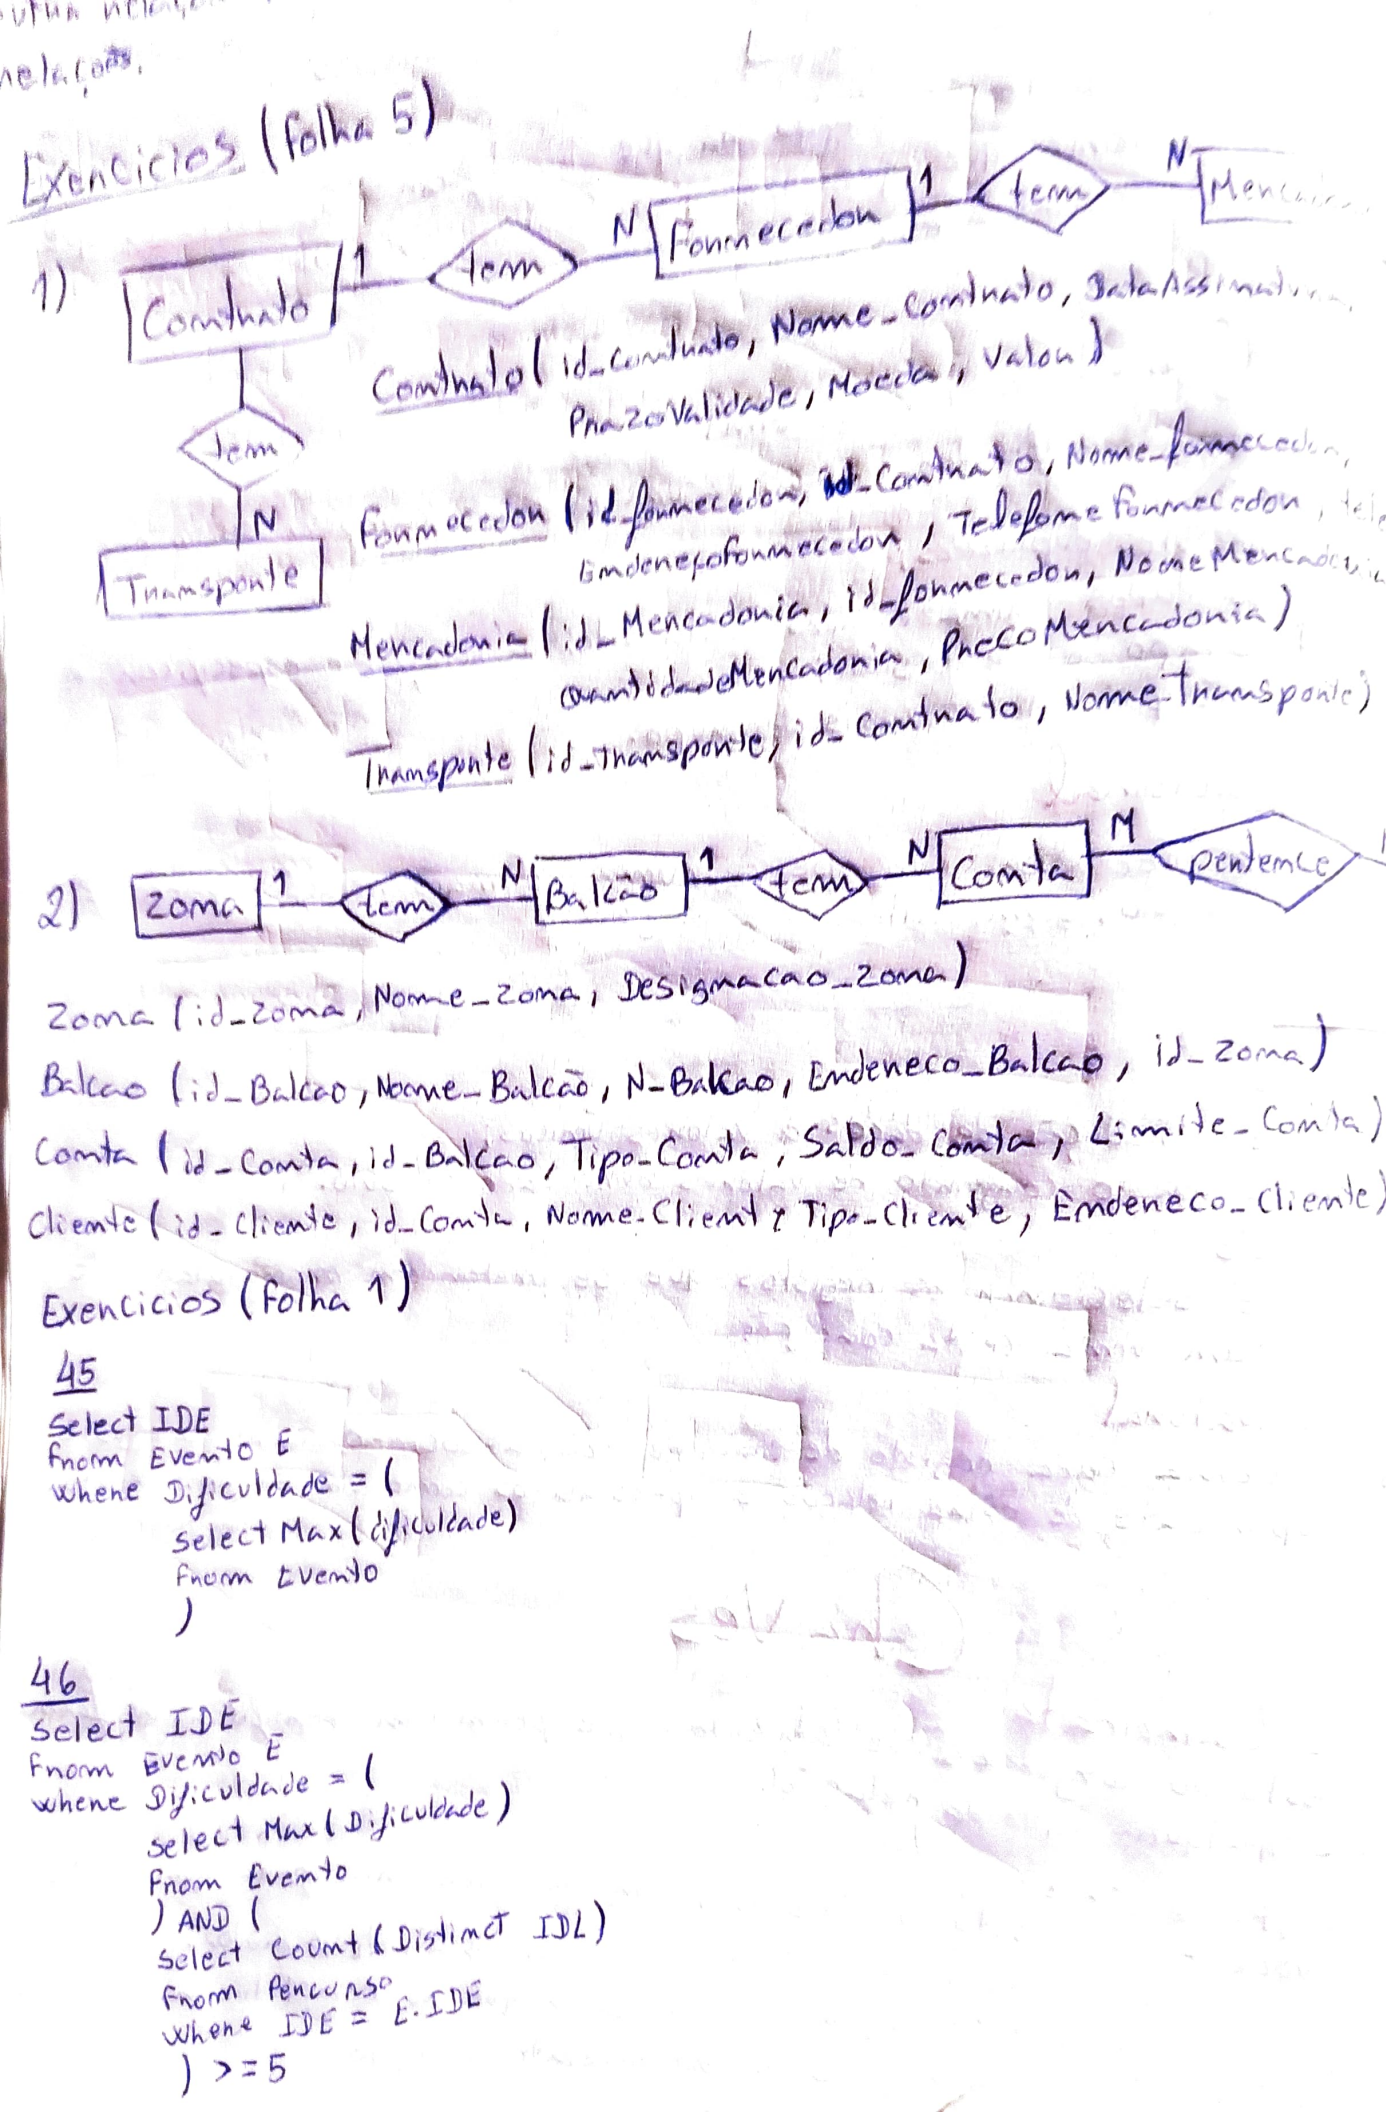 outra relação
relações.
Exercicios (folha 5)
1)
Contrato 1 tem N Fornecedor 1 tem N
tem
N
Transporte
Contrato (id_Contrato, Nome_Contrato, DataAssinatura,
PrazoValidade, Moeda, Valor)
Fornecedor (id_fornecedor, id_Contrato, Nome_fornecedor,
EndereçoFornecedor, Telefone fornecedor,
Mercadoria (id_Mercadoria, id_fornecedor, NomeMercadoria
QuantidadeMercadoria, PrecoMercadoria)
Transporte (id_transporte, id_Contrato, Nome_Transporte)
2) Zona 1 tem N Balcão 1 tem N Conta M pertence
Zona (id_zona, Nome_zona, Designacao_zona)
Balcao (id_Balcao, Nome_Balcão, N_Balcao, Endereco_Balcao, id_zona)
Conta (id_Conta, id_Balcao, Tipo_Conta, Saldo_Conta, Limite_Conta)
Cliente (id_cliente, id_Conta, Nome_Client, Tipo_Cliente, Endereco_Cliente)
Exercicios (folha 1)
45
Select IDE
from Evento E
where Dificuldade = (
select Max(dificuldade)
from Evento
)
46
Select IDE
from Evento E
where Dificuldade = (
select Max(Dificuldade)
from Evento
) AND (
Select Count (Distinct IDL)
from Percurso
where IDE = E.IDE
) >=5